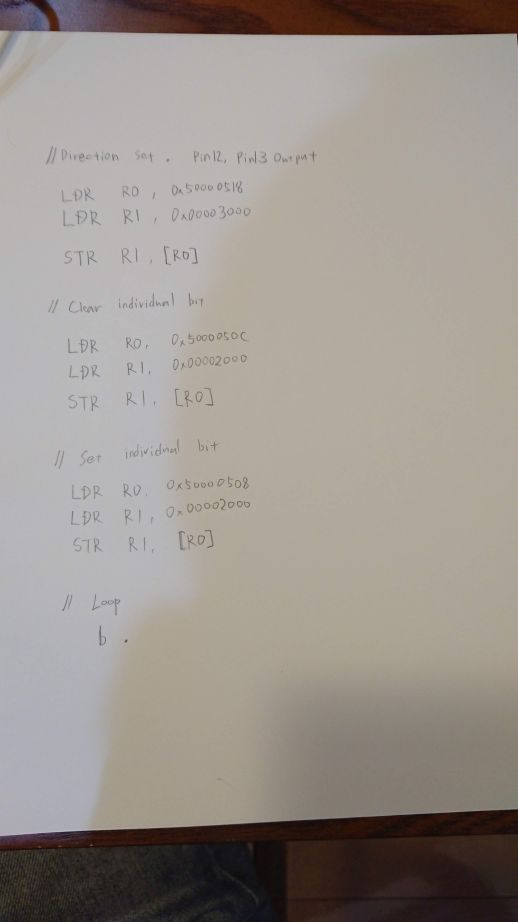 //Direction Set. Pin12, Pin13 Output
LDR R0, 0x50000518
LDR R1, 0x00003000
STR R1, [R0]
// Clear individual bit
LDR R0, 0x5000050C
LDR R1, 0x00002000
STR R1, [R0]
// Set individual bit
LDR R0, 0x50000508
LDR R1, 0x00002000
STR R1, [R0]
// Loop
b .